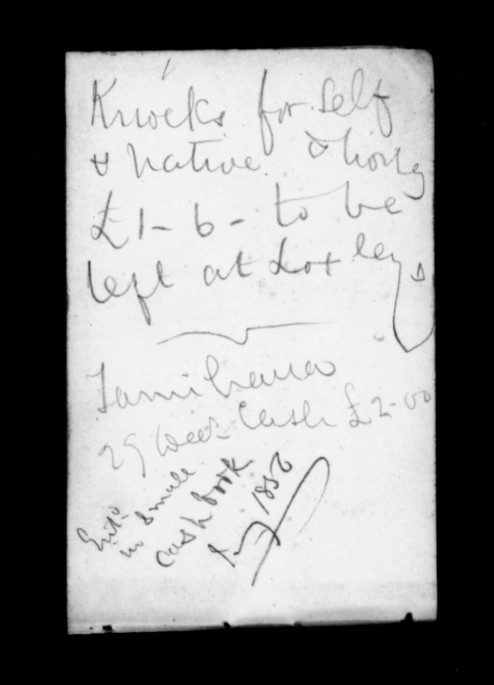 Knocks for Self
& Native &
£1-6- to be
left at Loxleys
Tamihana
29 Decr Cash £2-00
Entd
in Small
Cash book
1856